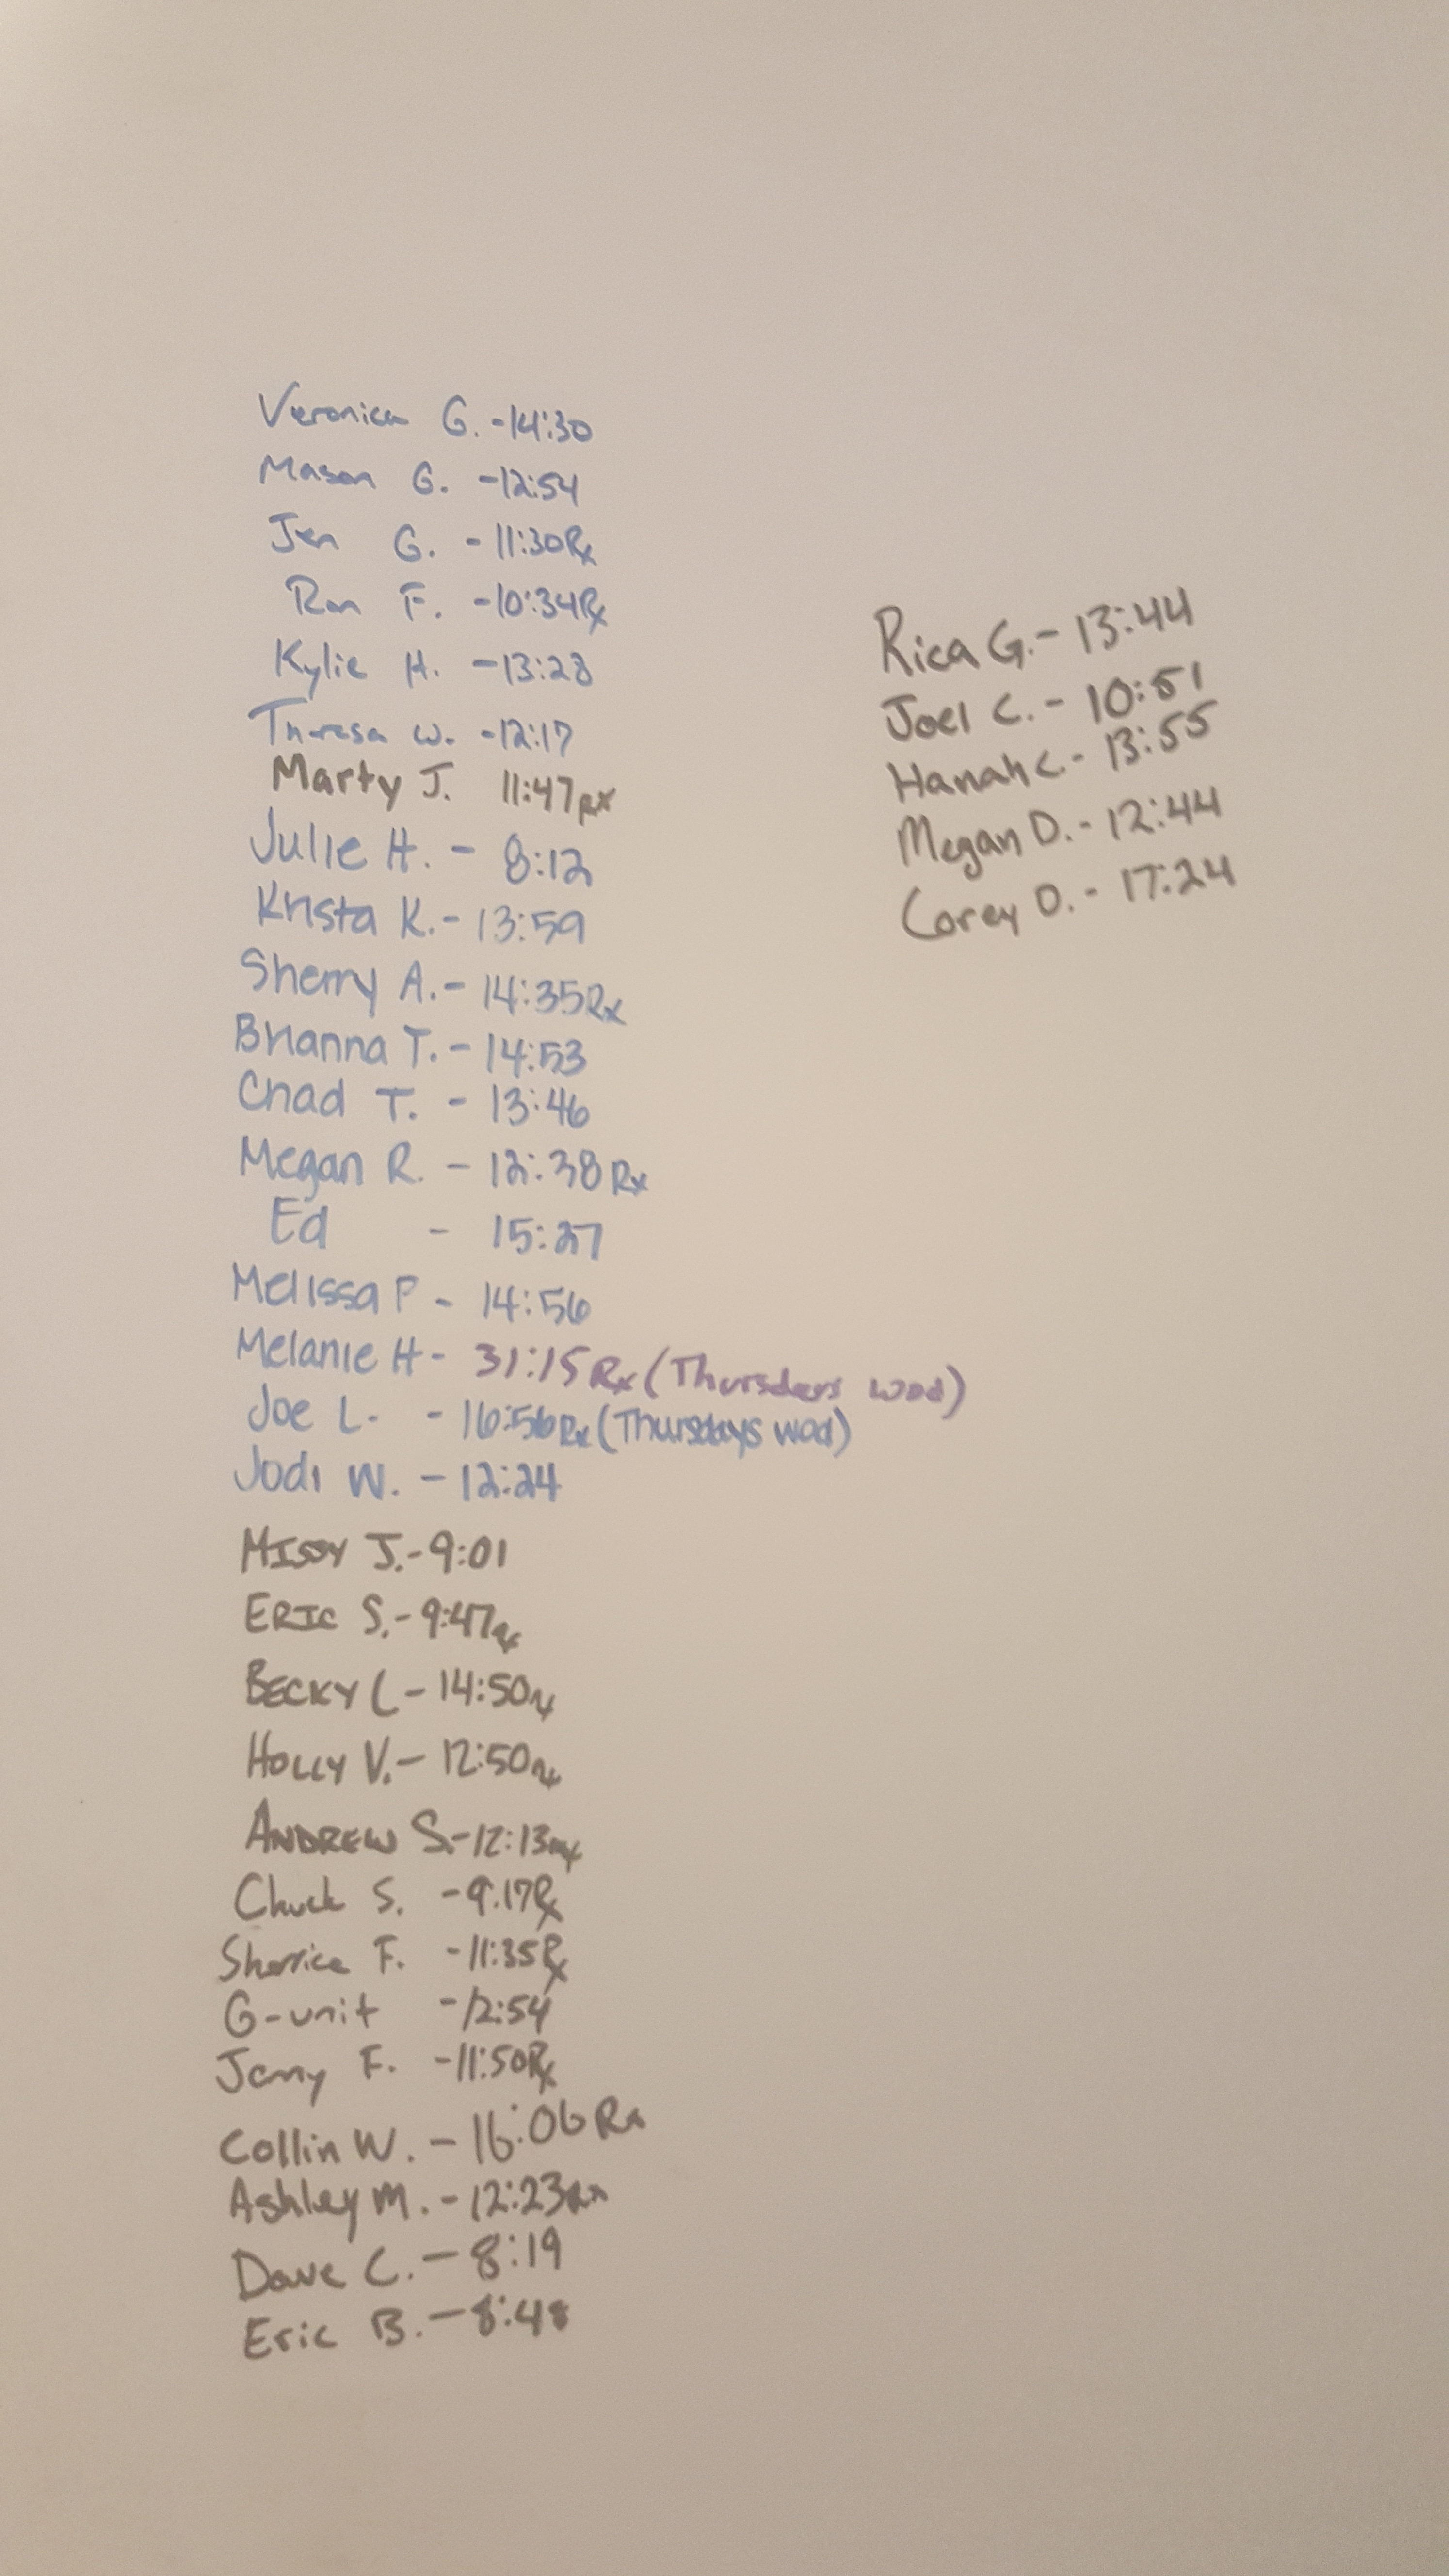 Veronica G. -14:30
Mason G. -12:54
Jen G. -11:30Rx
Ron F. -10:34Rx
Kylie H. -13:28
Theresa W. -12:17
Marty J. 11:47RX
Julie H. - 8:12
Krista K. - 13:59
Sherry A. - 14:35Rx
Brianna T. - 14:53
Chad T. - 13:46
Megan R. - 12:38 Rx
Ed - 15:27
Melissa P - 14:56
Melanie H - 31:15 Rx (Thursdays wod)
Joe L. - 16:56Rx (Thursdays wod)
Jodi W. - 12:24
MISSY J. - 9:01
ERIC S. - 9:47Rx
BECKY C - 14:50Rx
HOLLY V. - 12:50Rx
ANDREW S. - 12:13Rx
Chuck S. -9:17Rx
Sherrice F. -11:35Rx
G-unit -12:54
Jerry F. -11:50Rx
Collin W. - 16:06 Rx
Ashley M. - 12:23Rx
Dave C. - 8:19
Eric B. - 8:48
Rica G. - 13:44
Joel C. - 10:51
Hanah C. - 13:55
Megan D. - 12:44
Corey D. - 17:24